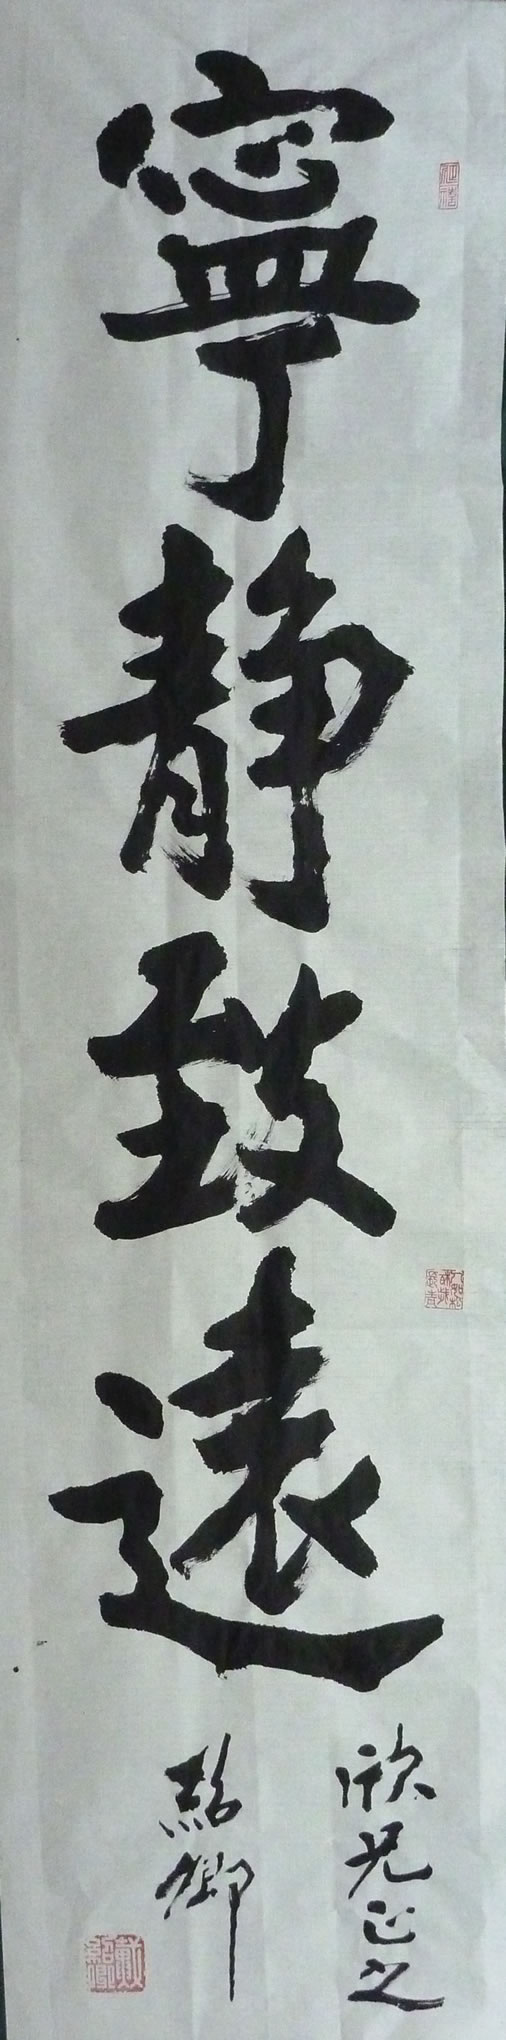 寧靜致遠
欣兄正之
紹卿